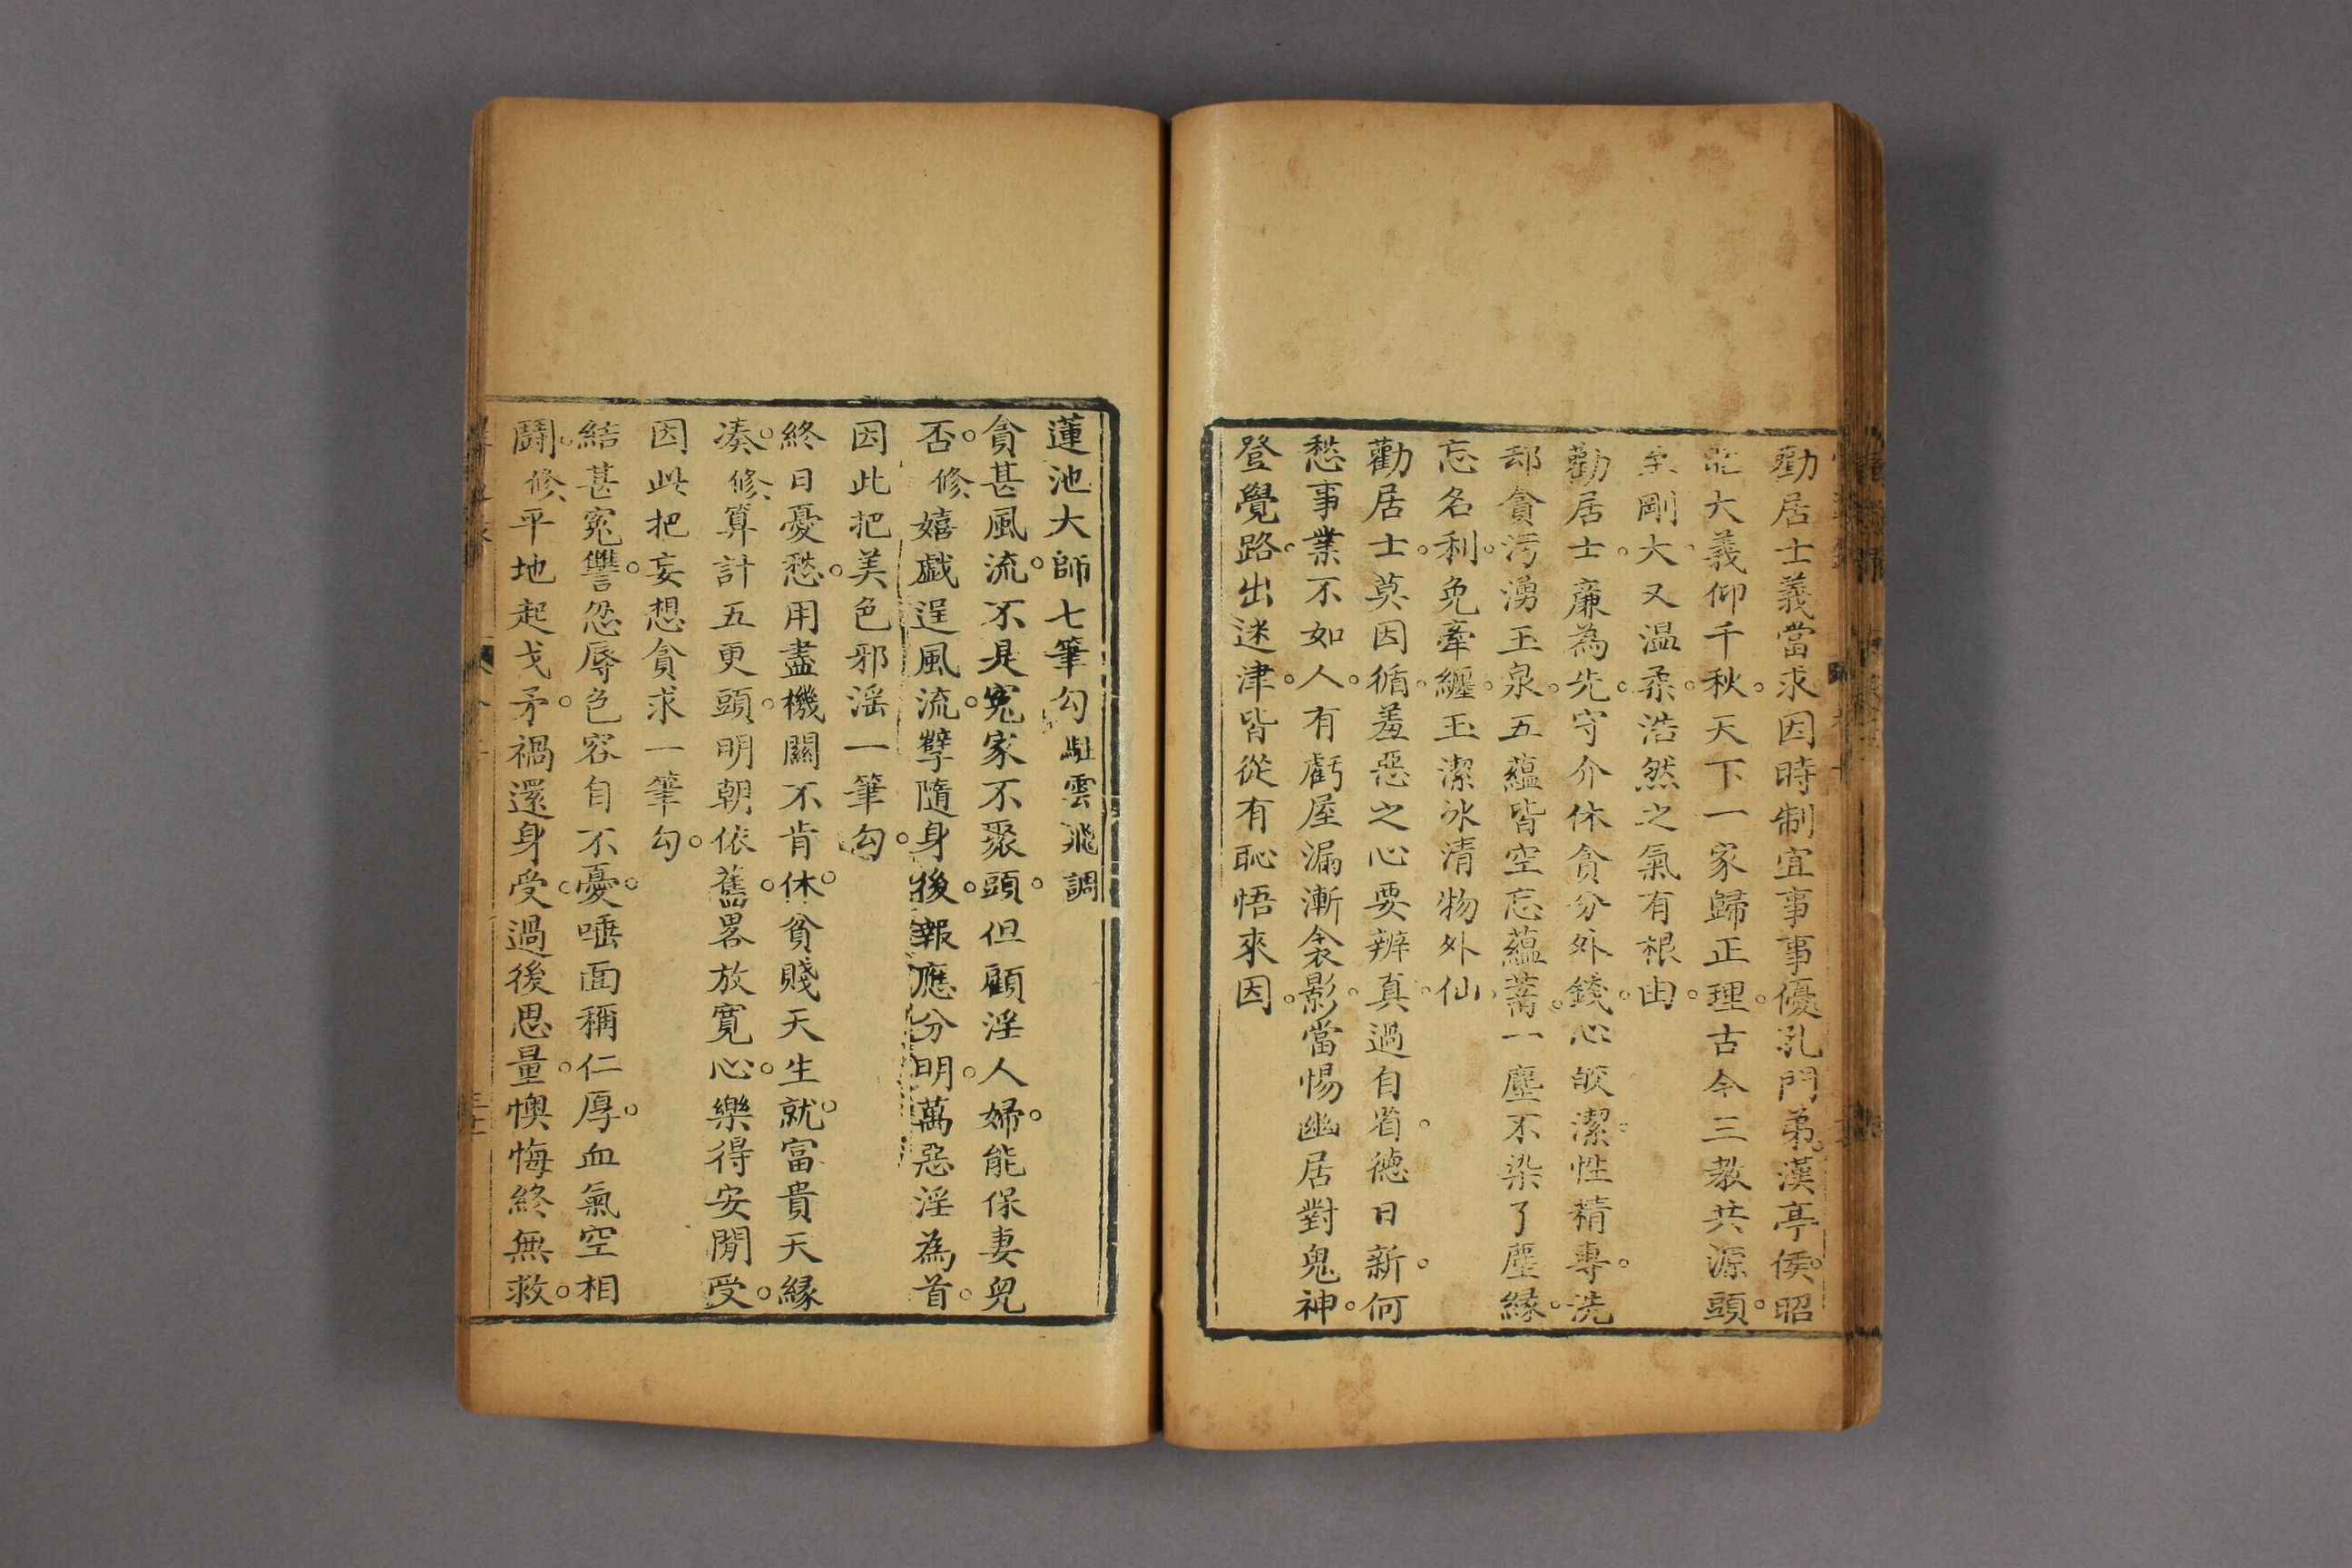 勸居士義當求因時制宜事事優。孔門弟。漢亭侯。昭
大義仰千秋。天下一家歸正理。古今三教共源頭。
至剛大。又溫柔。浩然之氣有根由。
勸居士。廉為先。守介休貪分外錢。心皎潔。性精專。洗
却貪污湧玉泉。五蘊皆空忘蘊蓄。一塵不染了塵緣。
忘名利。免牽纏。玉潔冰清物外仙。
勸居士。莫因循。羞惡之心要辨真。過自省。德日新。何
愁事業不如人。有虧屋漏漸衾影。當惕幽居對鬼神。
登覺路。出迷津。皆從有恥悟來因。
蓮池大師七筆勾 駐雲飛調
貪甚風流。不是冤家不聚頭。但顧淫人婦。能保妻兒
否。修嬉戲逞風流。孽隨身後。報應分明。萬惡淫為首。
因此把美色邪淫一筆勾。
終日憂愁。用盡機關不肯休。貧賤天生就。富貴天緣
湊。修算計五更頭。明朝依舊。畧放寬心。樂得安閒受。
因此把妄想貪求一筆勾。
結甚冤讐。忍辱色容自不憂。唾面稱仁厚。血氣空相
鬪。修平地起戈矛。禍還身受。過後思量。懊悔終無救。